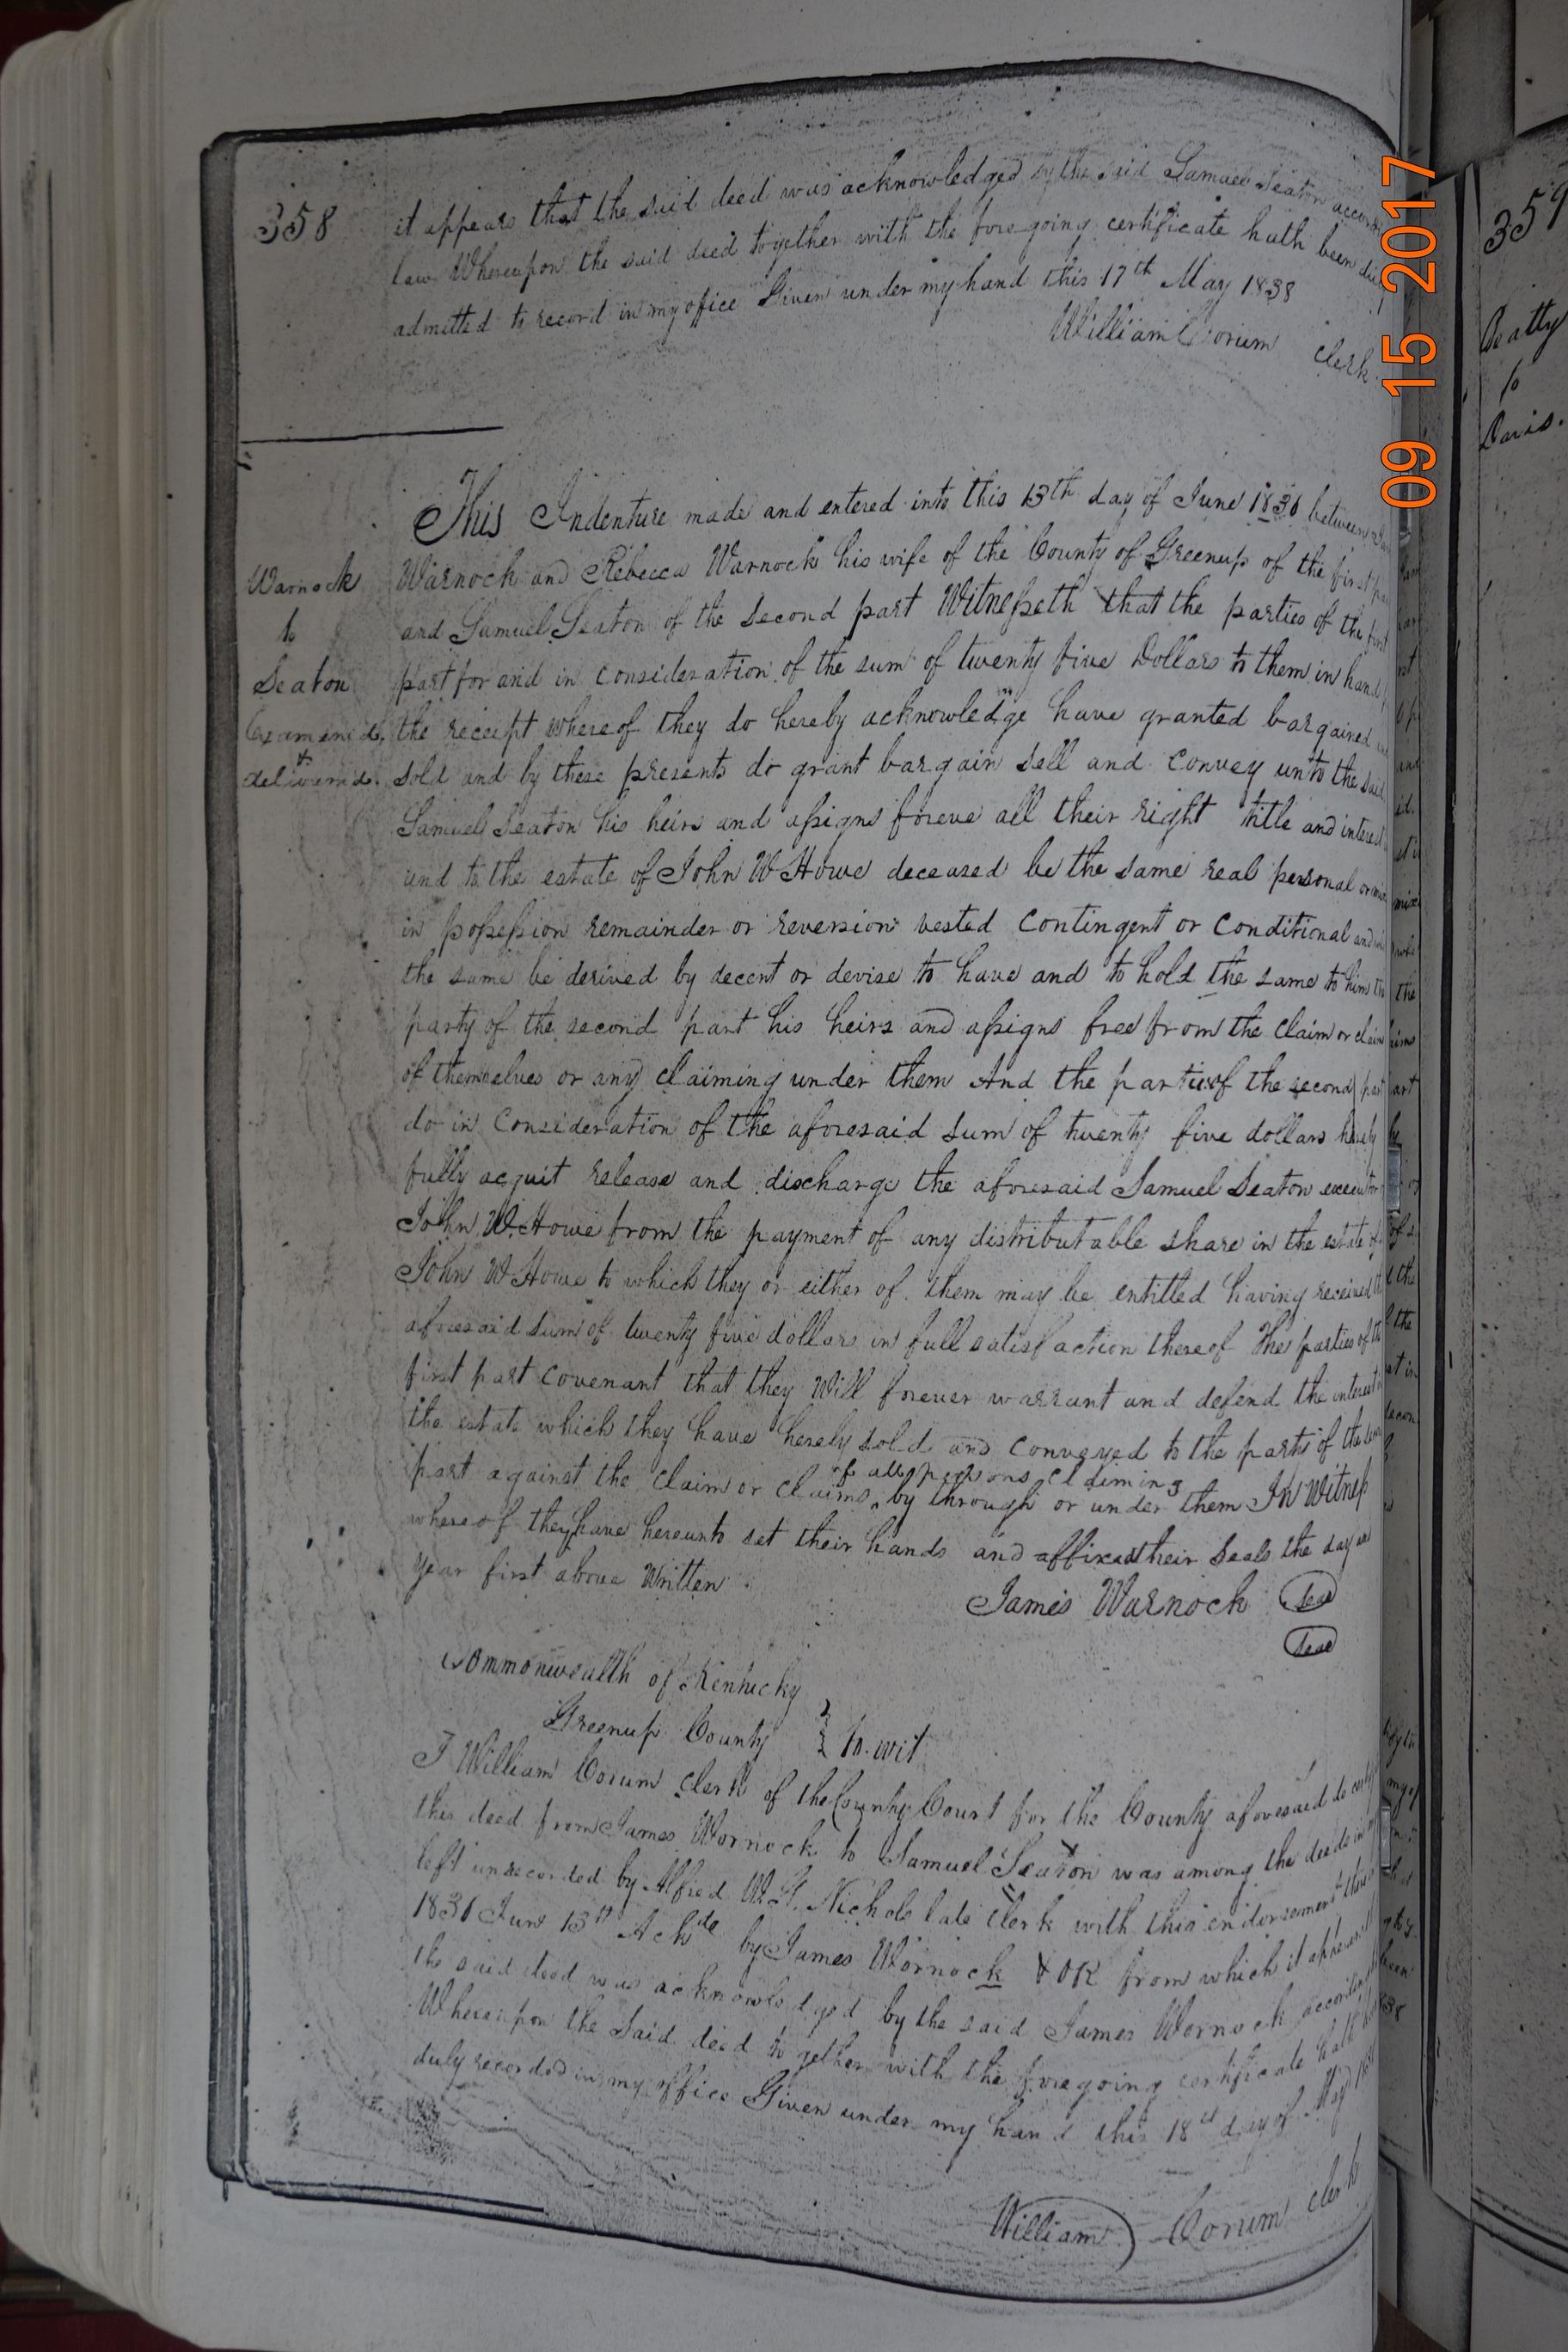 358
it appears that the said deed was acknowledged by the said Samuel Seaton accord
law Whereupon the said deed together with the foregoing certificate hath been
admitted to record in my office Given under my hand this 17th May 1838
William Corum Clerk.
This Indenture made and entered into this 13th day of June 1831 between
Warnock and Rebecca Warnock his wife of the County of Greenup of the first
and Samuel Seaton of the Second part Witnesseth that the parties of the first
part for and in consideration of the sum of twenty five Dollars to them in hand
the receipt whereof they do hereby acknowledge have granted bargained
sold and by these presents do grant bargain sell and convey unto the said
Samuel Seaton his heirs and assigns foreve all their right title and interest
and to the estate of John W Howe deceased be the same real personal or
in possession remainder or reversion vested contingent or conditional
the same be derived by decent or devise to have and to hold the same to him the
party of the second part his heirs and assigns free from the claim or claim
of themselves or any claiming under them And the parties of the second part
do in consideration of the aforesaid sum of twenty five dollars hereby
fully acquit release and discharge the aforesaid Samuel Seaton executor
John W. Howe from the payment of any distributable share in the estate of
John W Howe to which they or either of them may be entitled having received the
aforesaid sum of twenty five dollars in full satisfaction thereof The parties of the
first part covenant that they Will forever warrant and defend the interest
the estate which they have hereby sold and conveyed to the party of the
of all persons claiming
part against the claim or claims by through or under them In Witness
whereof they have hereunto set their hands and affixed their Seals the day
year first above Written
James Warnock Seal
Seal
Commonwealth of Kentucky
Greenup County to wit
I William Corum Clerk of the County Court for the County aforesaid do certify
this deed from James Wornock to Samuel Seaton was among the deeds in
left unrecorded by Alfred W. G. Nichols late Clerk with this endorsement
1831 June 13th Ackde by James Wornock & OR from which it appears
the said deed was acknowledged by the said James Wornock according
Whereupon the Said deed together with the foregoing certificate hath
duly recorded in my office Given under my hand this 18th day of May
William Corum Clerk
Warnock
to
Seaton
Examined
&
delivered.
09 15 2017
359
Beatty
to
Davis.